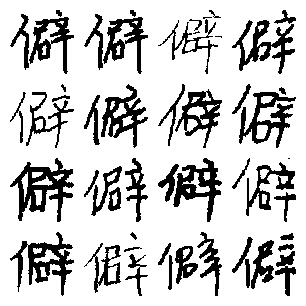 僻僻僻僻
僻僻僻僻
僻僻僻僻
僻僻僻僻